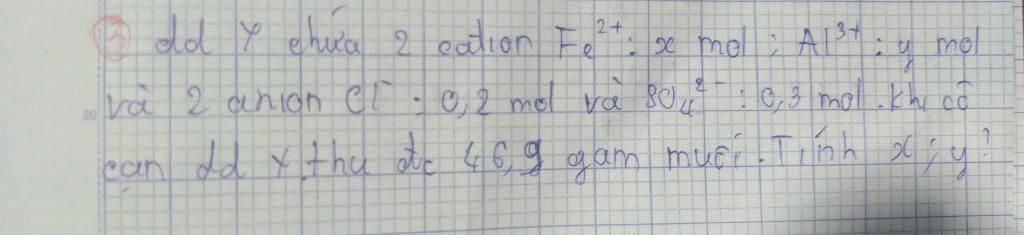 ③ dd Y chứa 2 cation Fe²⁺: x mol; Al³⁺: y mol
và 2 anion Cl⁻: 0,2 mol và SO₄²⁻: 0,3 mol. Khi cô
20
cạn dd Y thu đc 46,9 gam muối. Tính x; y?